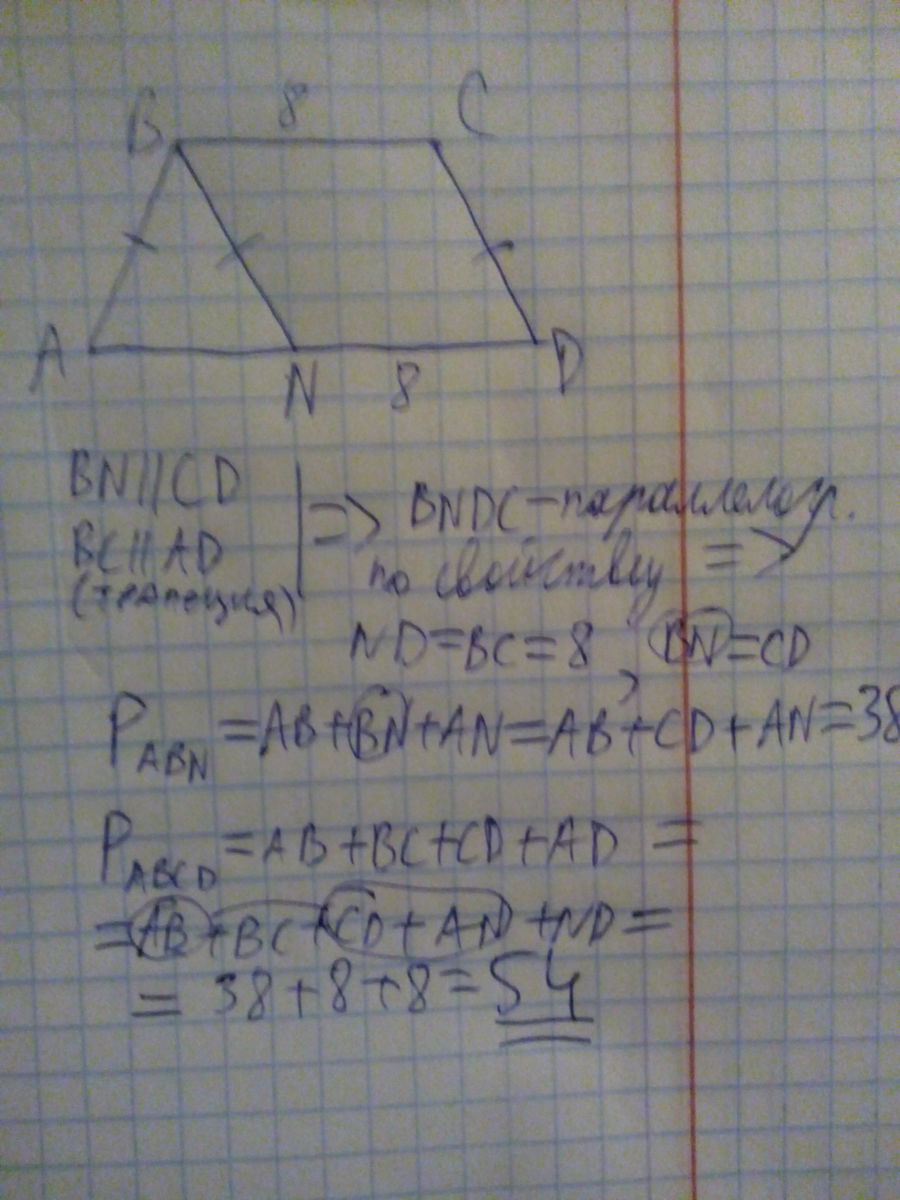 B 8 C
A N 8 D
BN||CD
BC||AD
(трапеция)
=> BNDC-параллелогр.
по свойству =>
ND=BC=8, BN=CD
P_ABN =AB+BN+AN=AB+CD+AN=38
P_ABCD =AB+BC+CD+AD =
=AB+BC+CD+AN+ND=
= 38+8+8=54